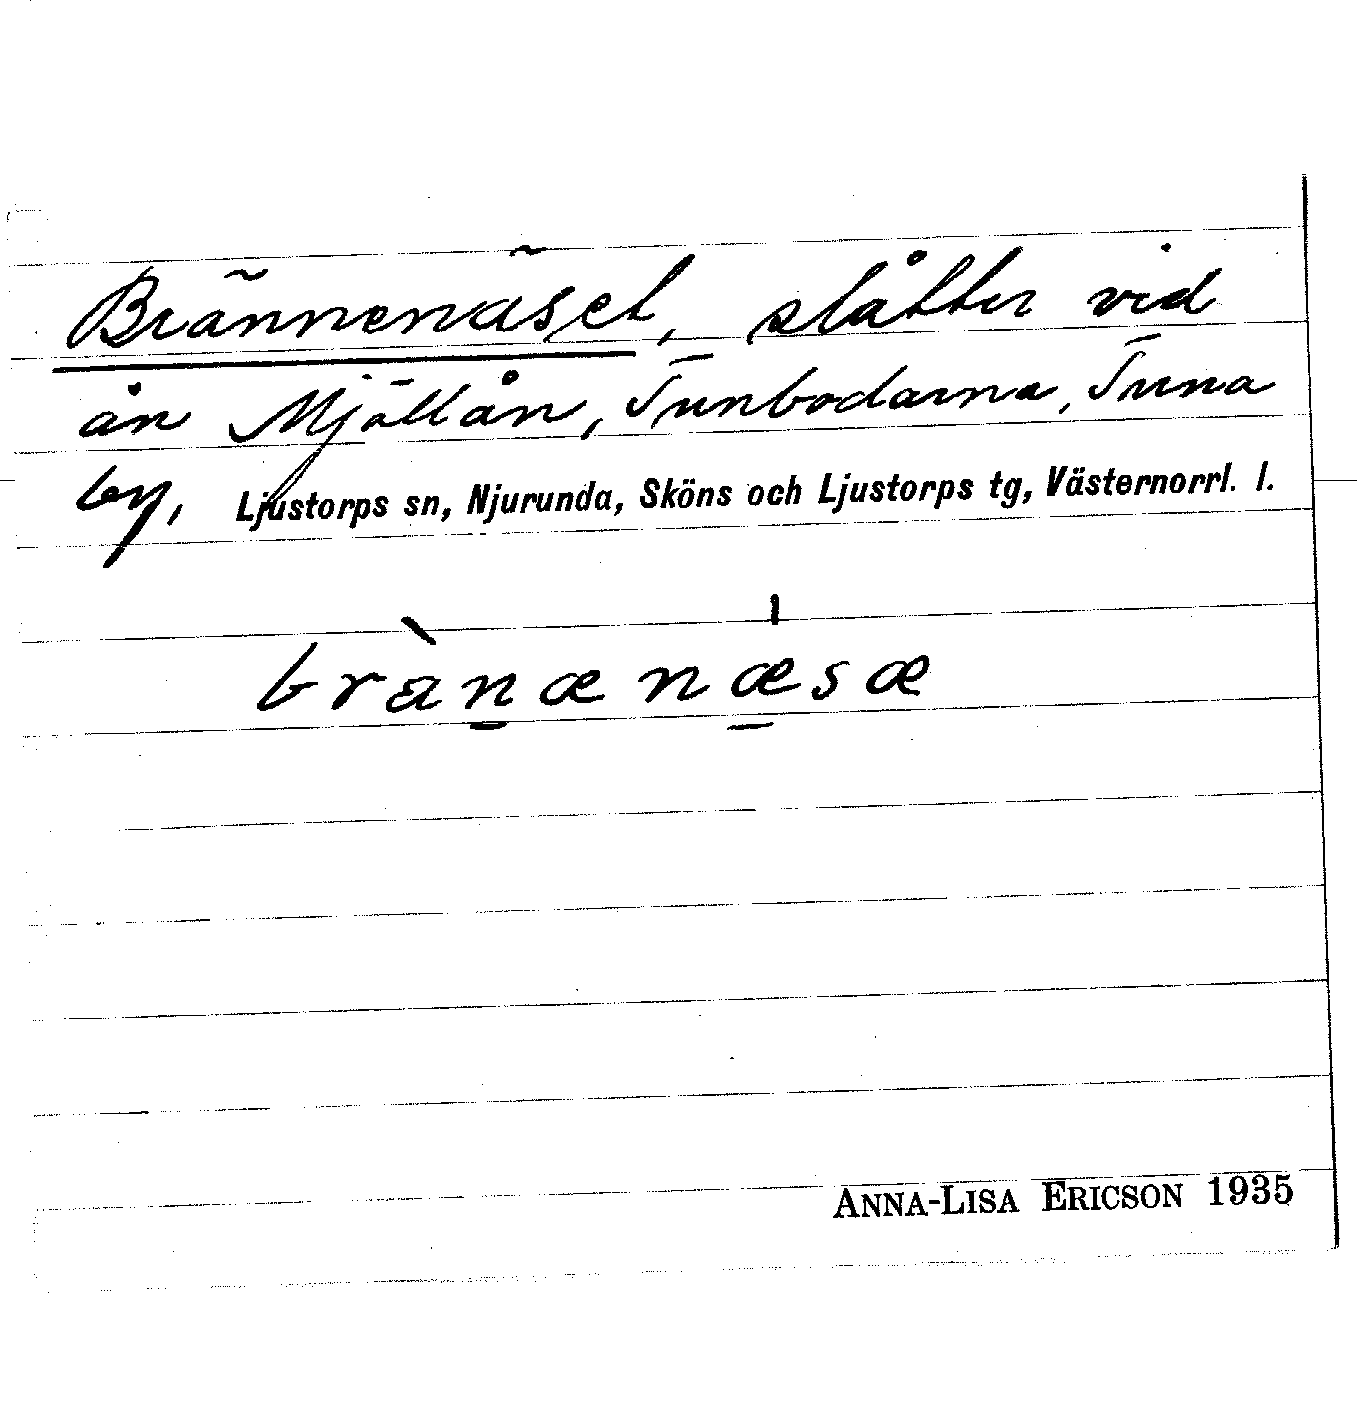 Brännenäset, slåtter vid
ån Mjällån, Tunbodarna, Tuna
by, Ljustorps sn, Njurunda, Sköns och Ljustorps tg, Västernorrl. l.
bràn̠ænæ̠̍sæ
ANNA-LISA ERICSON 1935